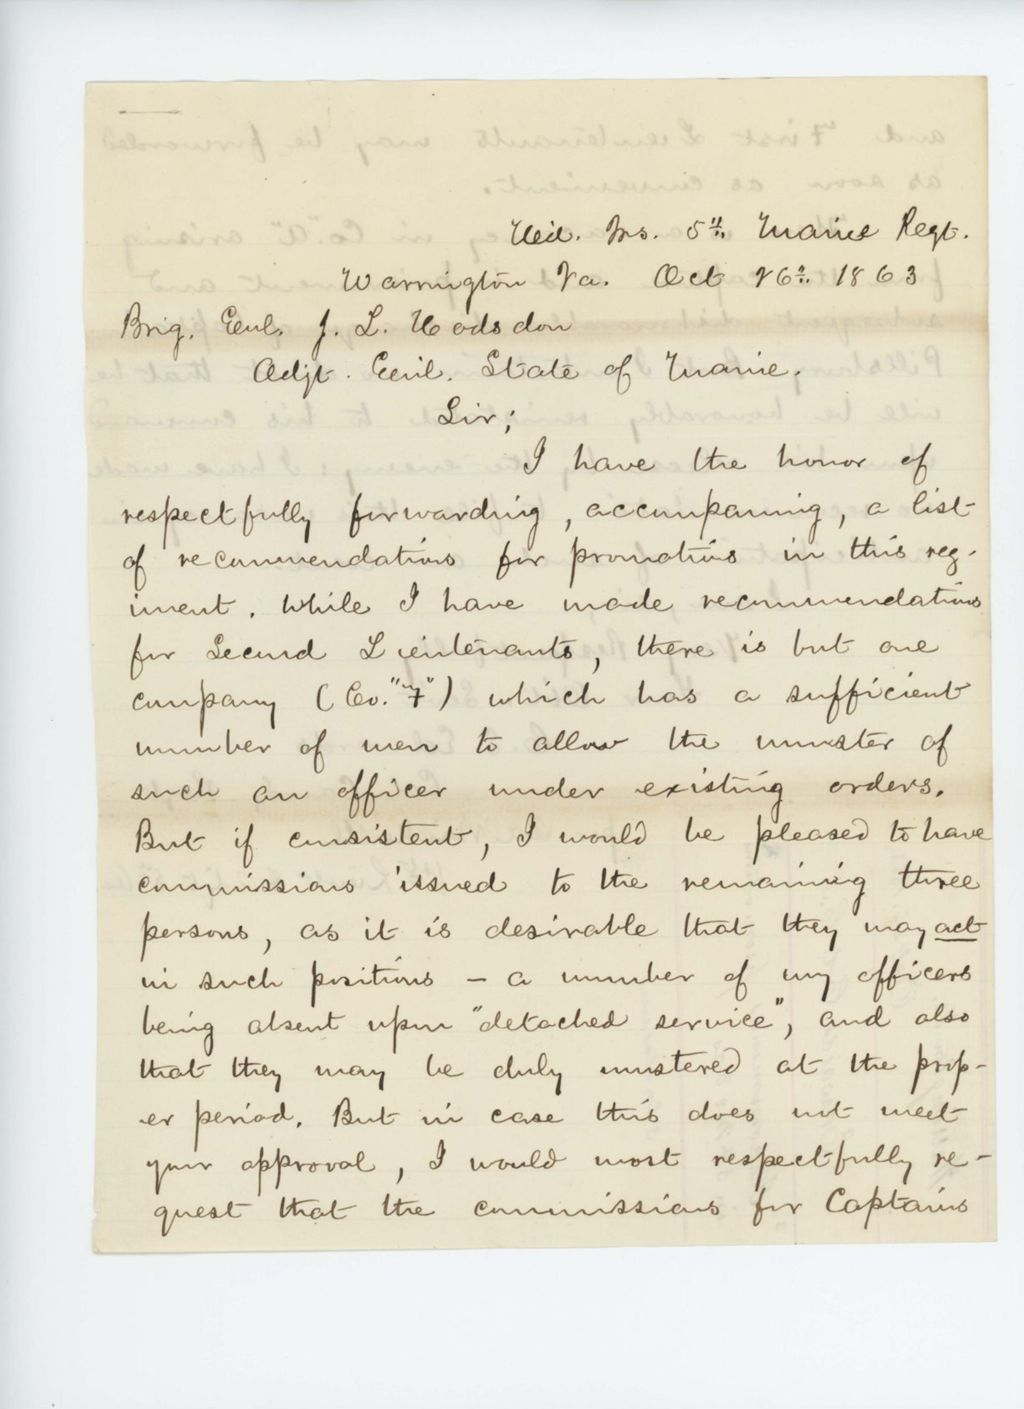 Hd. Qrs. 5th Maine Regt.
Warrington Va. Oct 26th 1863
Brig. Genl. J. L. Hodsdon
Adjt. Genl. State of Maine.
Sir;
I have the honor of
respectfully forwarding, accompaning, a list
of recommendations for promotions in this reg-
iment. While I have made recommendations
for Second Lieutenants, there is but one
company (Co. "F") which has a sufficient
number of men to allow the muster of
such an officer under existing orders.
But if consistent, I would be pleased to have
commissions issued to the remaining three
persons, as it is desirable that they may act
in such positions – a number of my officers
being absent upon "detached service", and also
that they may be duly mustered at the prop-
er period. But in case this does not meet
your approval, I would most respectfully re-
quest that the commissions for Captains